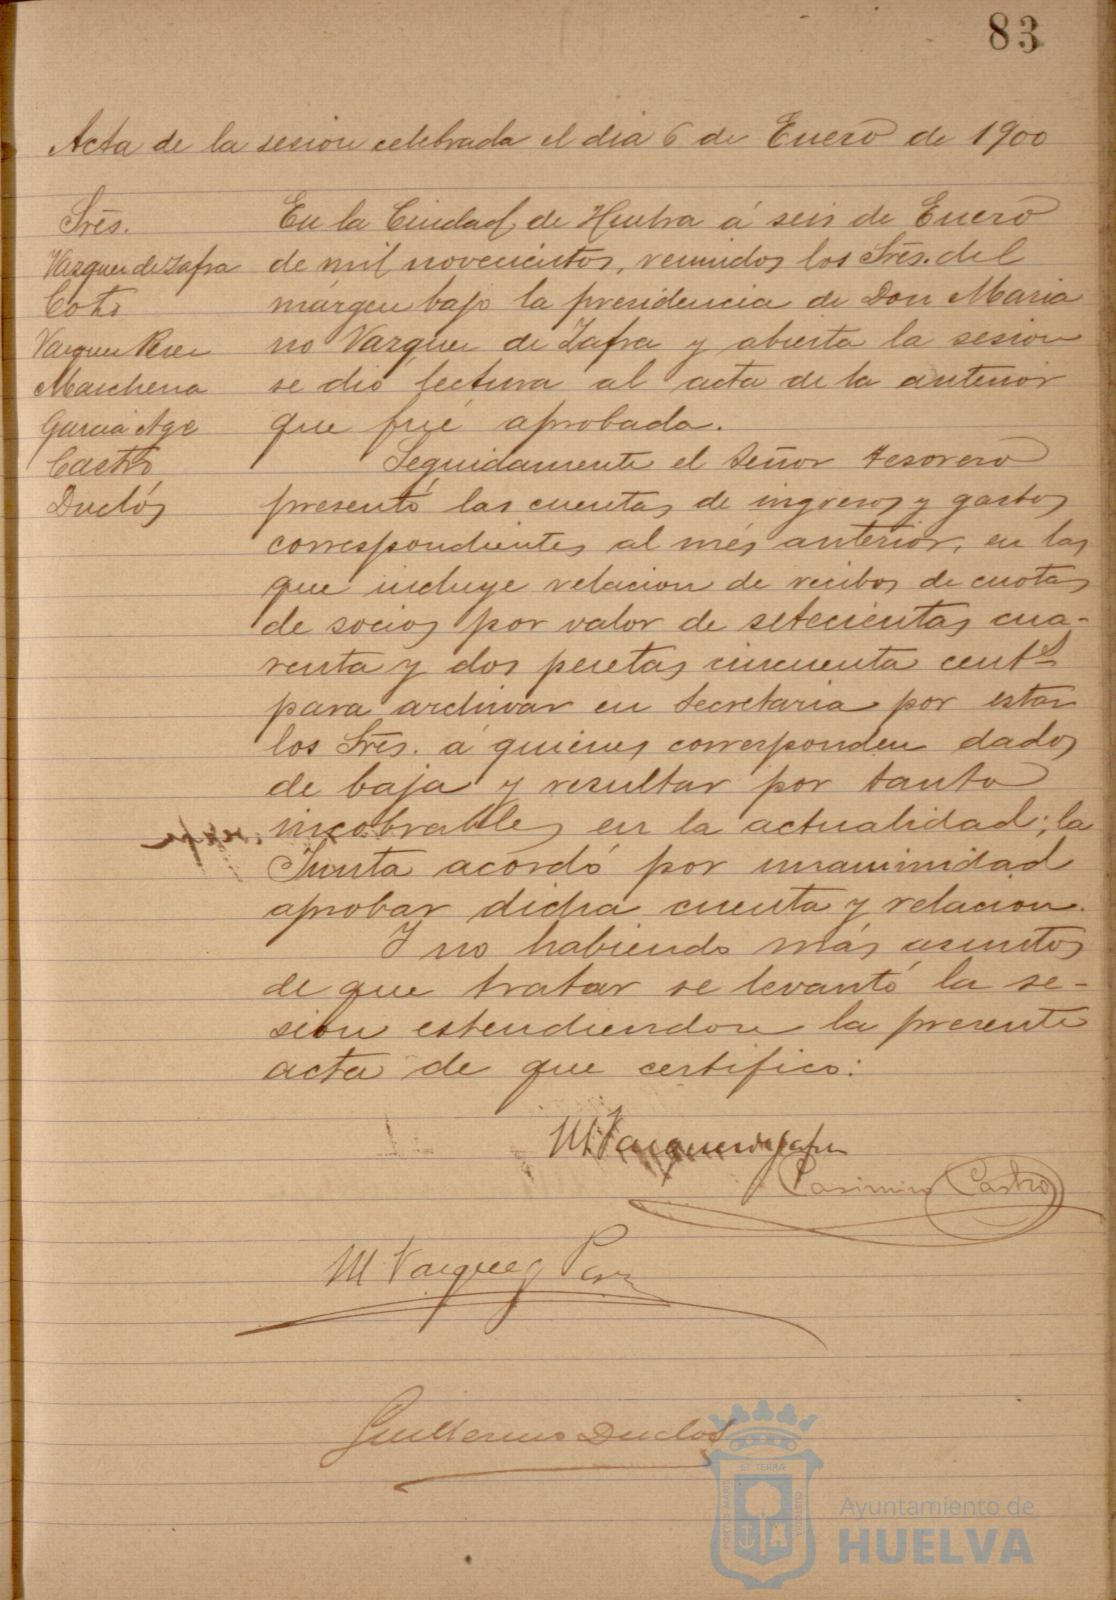 83
Acta de la sesion celebrada el dia 6 de Enero de 1900
Sres.
Vazquez de Zafra
Coto
Vazquez Perez
Marchena
Garcia Age
Castro
Duclós
En la Ciudad de Huelva á seis de Enero
de mil novecientos, reunidos los Sres. del
márgen bajo la presidencia de Don Maria
no Vazquez de Zafra y abierta la sesion
se dió lectura al acta de la anterior
que fué aprobada.
Seguidamente el Señor Tesorero
presentó las cuentas de ingresos y gastos
correspondientes al més anterior, en las
que incluye relacion de recibos de cuotas
de socios por valor de setecientas cua-
renta y dos pesetas cincuenta cents
para archivar en Secretaria por estar
los Sres. á quienes corresponden dados
de baja y resultar por tanto
incobrables en la actualidad; la
Junta acordó por unanimidad
aprobar dicha cuenta y relacion.
Y no habiendo más asuntos
de que tratar se levantó la se-
sion estendiendose la presente
acta de que certifico:
M Vazquez de Zafra
Casimiro Castro
M Vazquez Perez
Guillermo Duclós
PORTUS MARIS
ET TERRAE
CUSTODIA
Ayuntamiento de
HUELVA